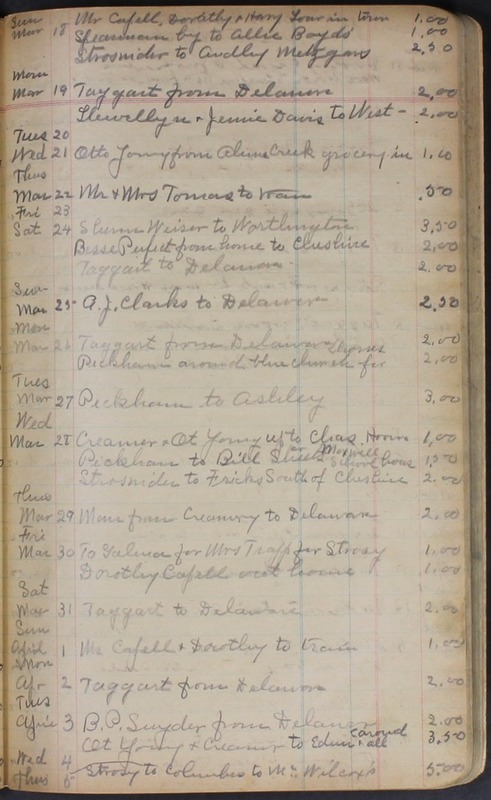 Sun
Mar 18 Mr Cafell, Dorothy & Harry Loar in town 1.00
Shearman by to Allie Boyds 1.00
Strosnider to Audley Metzgars 2,50
Mon
Mar 19 Taggart from Delaware 2,00
Llewellyn & Jennie Davis to West - 2,00
Tues 20
Wed 21 Otto Young from Alum Creek grocery in 1.10
Thus
Mar 22 Mr & Mrs Tomas to train .50
Fri 23
Sat 24 Sherm Weiser to Worthington 3,50
Besse Perfect from home to Cheshire 2,00
Taggart to Delaware 2.00
Sun
Mar 25 A.J. Clarks to Delaware 2,50
Mon
Mar 26 Taggart from Delaware 2,00
Peckham around blue church for 2,00
Tues
Mar 27 Peckham to Ashley 3,00
Wed
Mar 28 Creamer & Ot Young up to Chas. 1,00
Peckham to Bill Maxwell School house 1,50
Strosnider to Fricks South of Cheshire 2.00
Thus
Mar 29 Man from Creamery to Delaware 2,00
Fri
Mar 30 To Galena for Mrs Trapp for Strosy 1.00
Dorothy Cafell out home 1.00
Sat
Mar 31 Taggart to Delaware 2,00
Sun
April 1 Mr Cafell & Dorothy to train 1,00
Mon
Apr 2 Taggart from Delaware 2.00
Tues
April 3 B.P. Snyder from Delaware 2.00
Ot Young & Creamer to Edun & all around 3.50
Wed 4
Thus 5 Strosy to Columbus to Mr Wilcox's 5.00